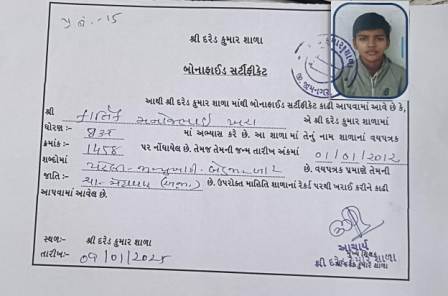 શ્રી દરેડ કુમાર શાળા
બોનાફાઈડ સર્ટીફીકેટ
આથી શ્રી દરેડ કુમાર શાળા માંથી બોનાફાઈડ સર્ટીફીકેટ કાઢી આપવામાં આવે છે કે,
શ્રી કાર્તિક એ શ્રી દરેડ કુમાર શાળામાં
ધોરણ:- માં અભ્યાસ કરે છે. આ શાળા માં તેનું નામ શાળાનાં વયપત્રક
ક્રમાંક:- 1458 પર નોંધાયેલ છે. તેમજ તેમની જન્મ તારીખ અંકમાં 01/01/2012
શબ્દોમાં પહેલી-જાન્યુઆરી-બે હજાર બાર છે. વયપત્રક પ્રમાણે તેમની
જાતિ:- છે. ઉપરોક્ત માહિતિ શાળાનાં રેકર્ડ પરથી ખરાઈ કરીને કાઢી
આપવામાં આવેલ છે.
આચાર્ય
સ્થળ:- શ્રી દરેડ કુમાર શાળા
શ્રી દરેડ કુમાર શાળા
તારીખ:- 09/01/2025